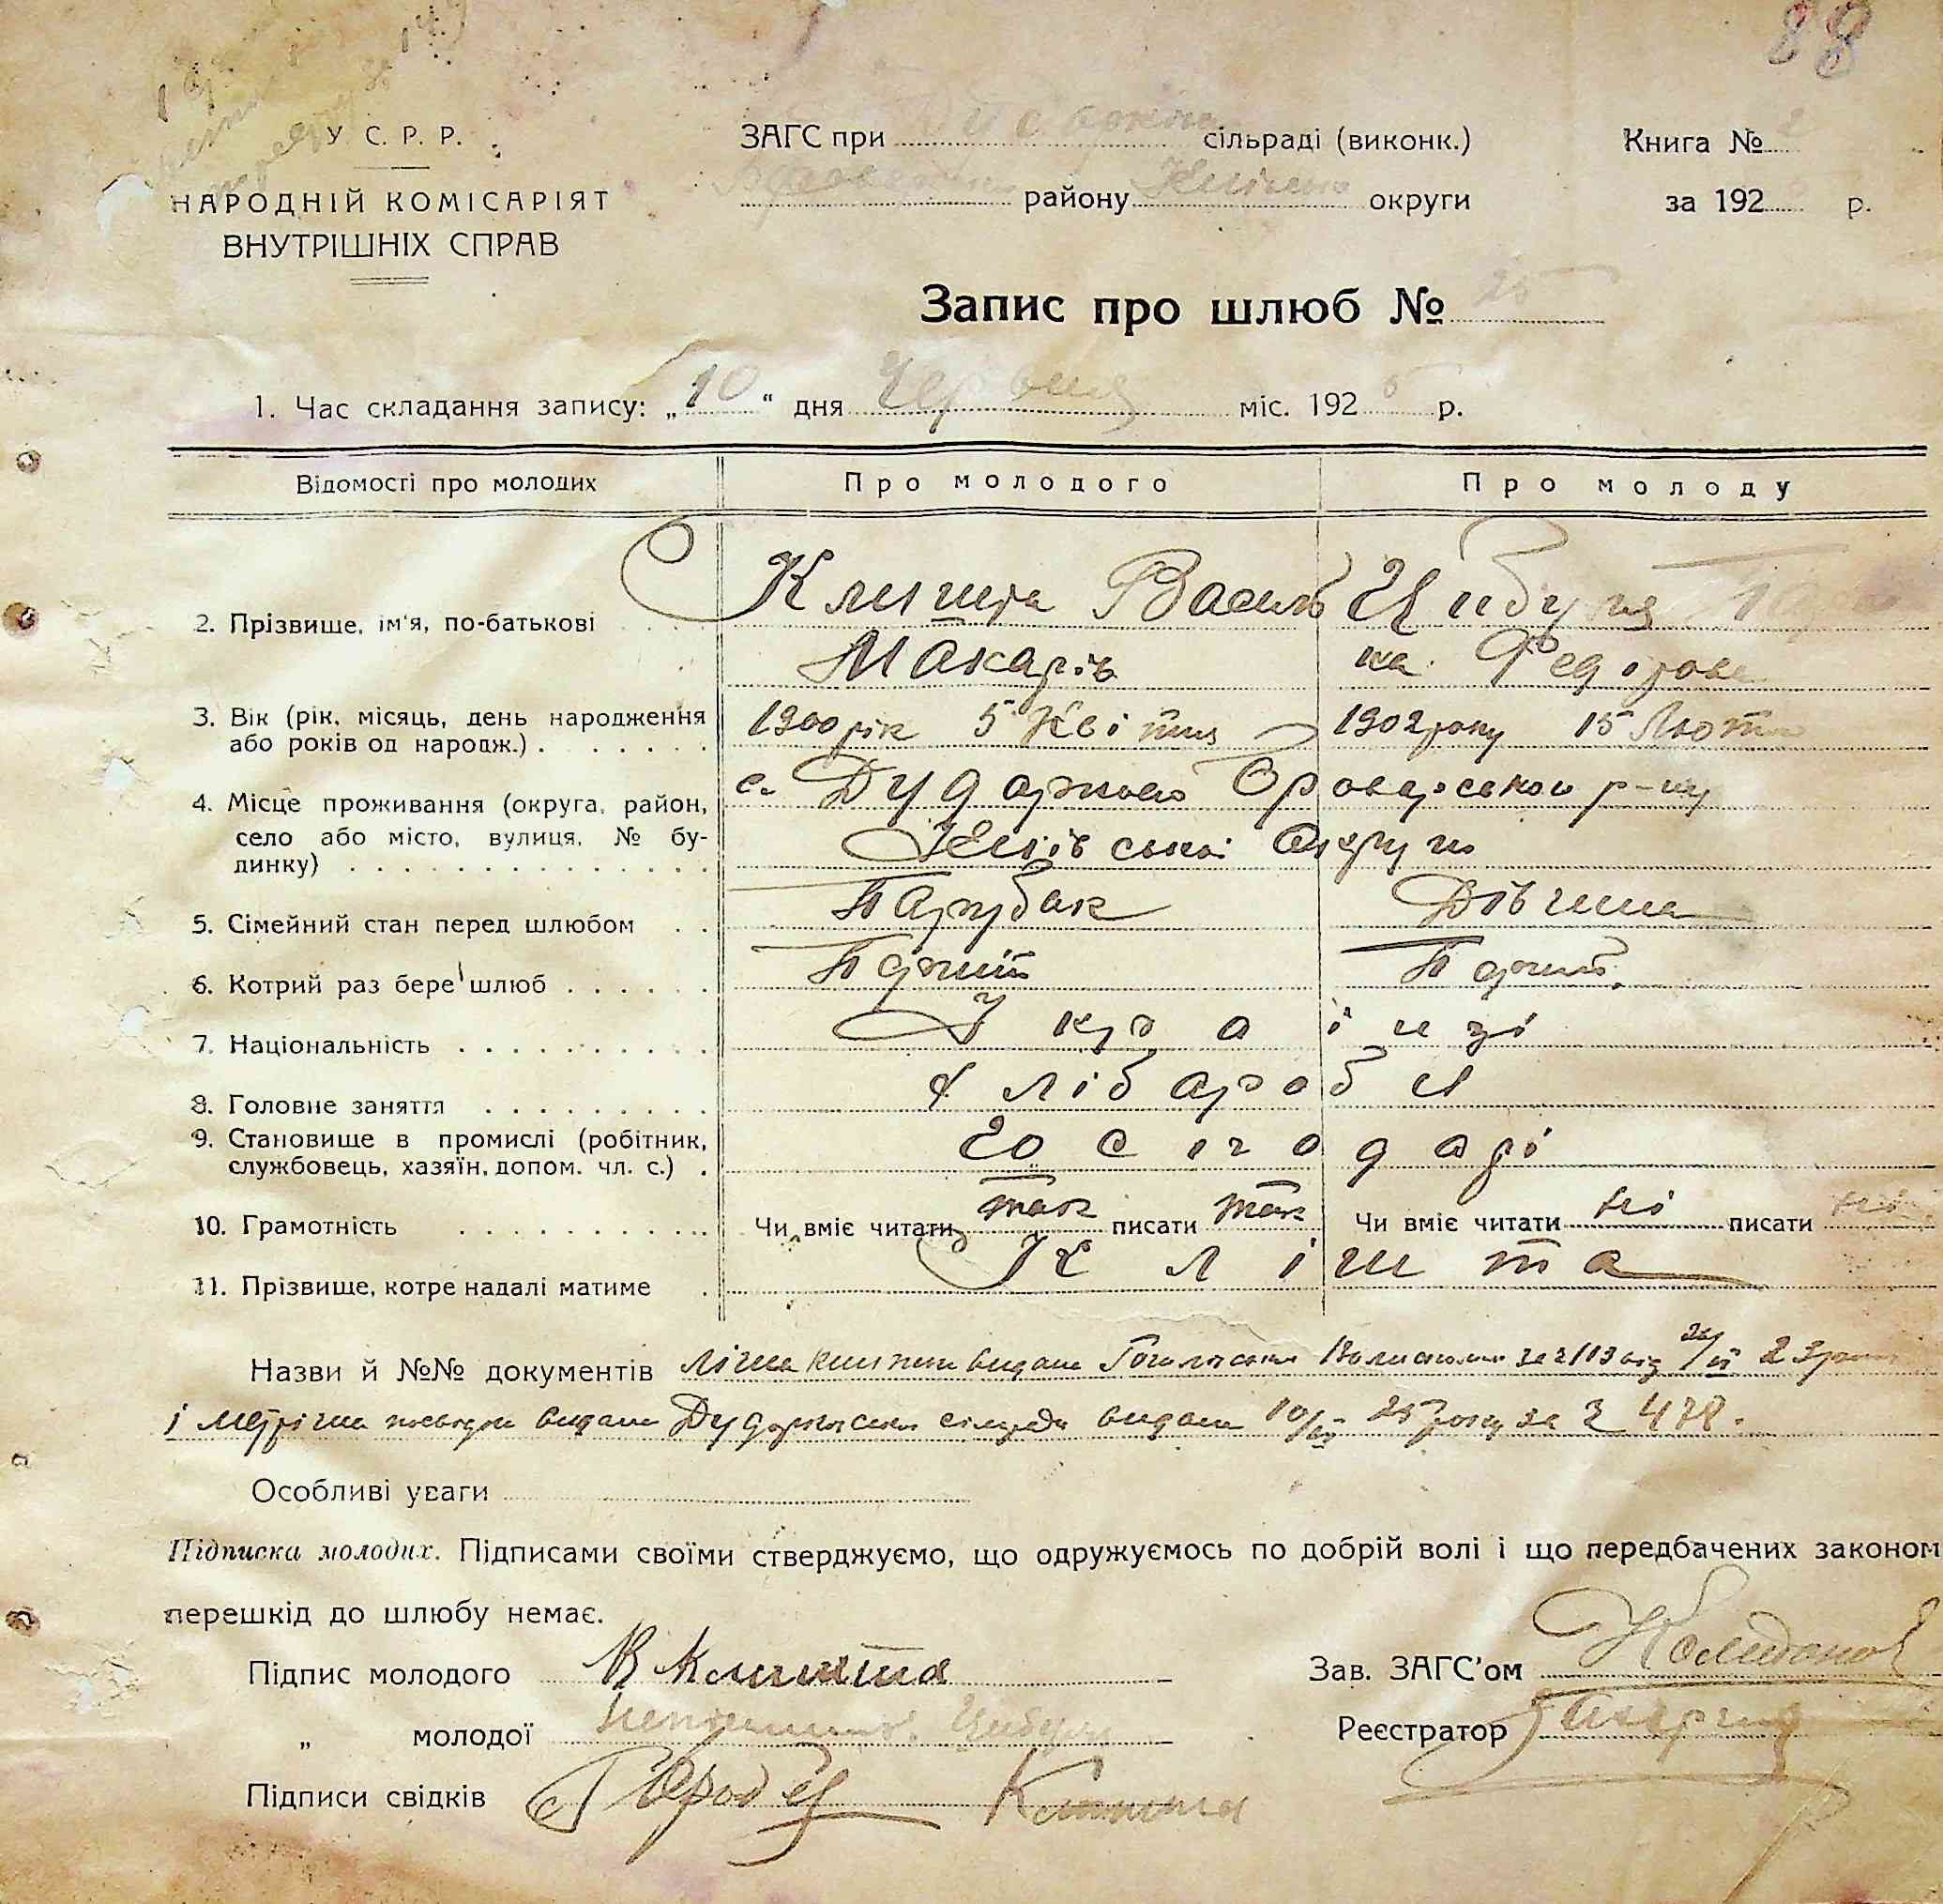 88
У С. Р. Р.
НАРОДНІЙ КОМІСАРІЯТ
ВНУТРІШНІХ СПРАВ
ЗАГС при сільраді (виконк.)
району округи
Книга № 2
за 192 р.
Запис про шлюб № 25
1. Час складання запису: „10“ дня Червня міс. 1925 р.
Відомості про молодих Про молодого Про молоду
2. Прізвище, ім'я, по-батькові Клишта Василь Цибуля
Макарів на Федорова
3. Вік (рік, місяць, день народження 1900 рік 5 Квітня 1902 року 15 Лютня
або років од народж.)
4. Місце проживання (округа, район, с. Дударков Броварського р-ну
село або місто, вулиця, № бу- Київської Округи
динку)
5. Сімейний стан перед шлюбом Парубак Дівчина
6. Котрий раз бере шлюб Перший Перший
7. Національність Українці
8. Головне заняття Хлібароби
9. Становище в промислі (робітник, Госпо дарі
службовець, хазяїн, допом. чл. с.)
10. Грамотність Чи вміє читати так писати так Чи вміє читати ні писати ні
11. Прізвище, котре надалі матиме Клішта
Назви й №№ документів видана за 2113 від 23 року
і метрічна видана Дударківська сільрада видана 10/VI 25 року за 478.
Особливі уваги
Підписка молодих. Підписами своїми стверджуємо, що одружуємось по добрій волі і що передбачених законом
перешкід до шлюбу немає.
Підпис молодого В Клишта
„ молодої Цибуля
Підписи свідків Клишта
Зав. ЗАГС'ом
Реєстратор